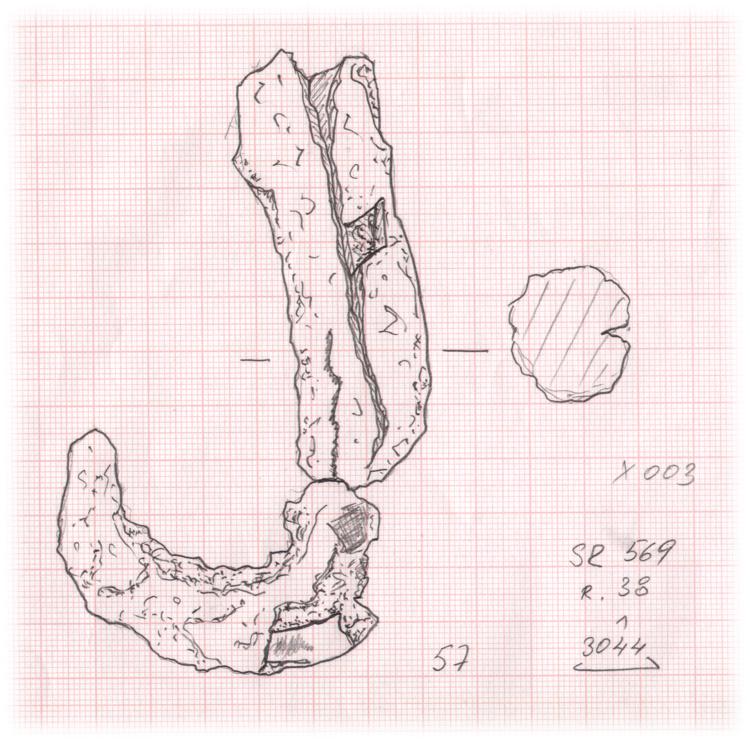 X 003
SR 569
R. 38
^
3044
57